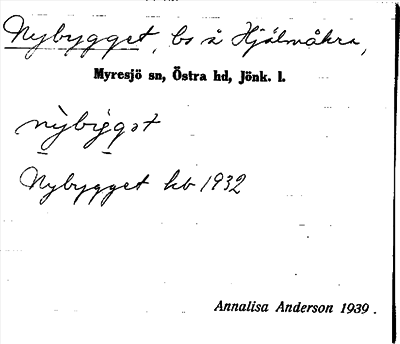 Nybygget, bs å Hjälmåkra,
Myresjö sn, Östra hd, Jönk. l.
nỳbýgət
Nybygget kb 1932
Annalisa Anderson 1939.